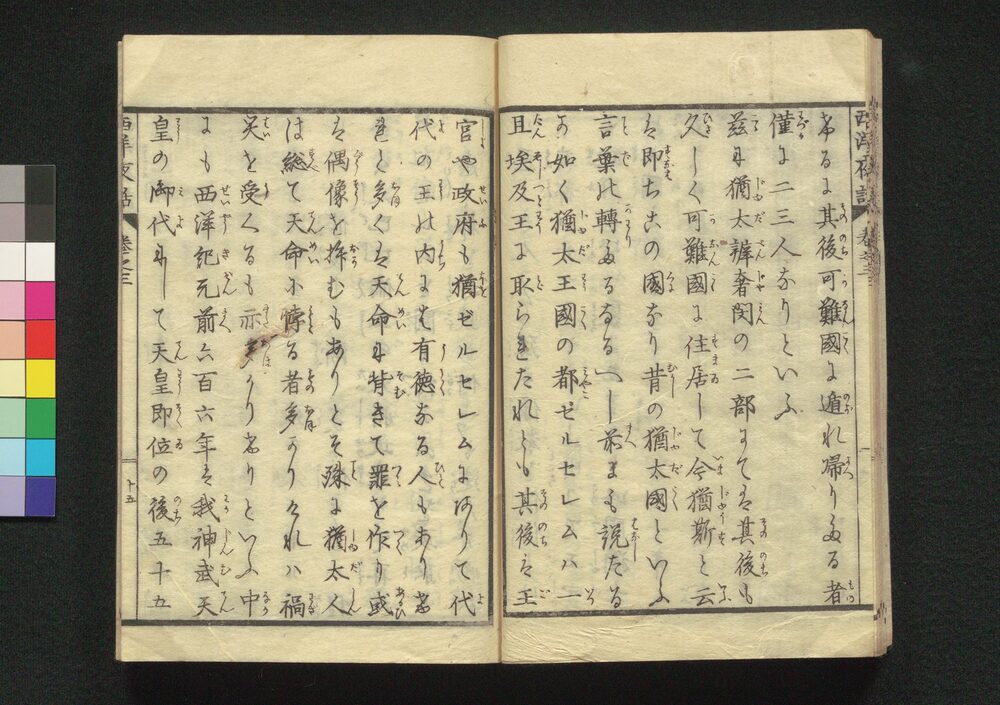 西洋夜話 巻之三
布るに其後可難國に遁れ帰りたる者
僅に二三人なりといふ
茲に猶太辨奢閔の二部にては其後も
久しく可難國に住居して今猶斯と云
は即ち古の國なり昔の猶太國といふ
言葉の轉たるなるべし前にも説たる
の如く猶太王國の都ゼルセレムハ一
且埃及王に取られたれとも其後は王
官や政府も猶ゼルセレムにありて代
代の王の内には有徳なる人もあり
多くは天命に背きて罪を作り或
は偶像を拝むもありとそ殊に猶太人
は総て天命に悖る者多かりけれハ禍
災を受くるも亦多かりなりといふ中
にも西洋紀元前六百六年は我神武天
皇の御代にして天皇即位の後五十五
西洋夜話 巻之三
十五